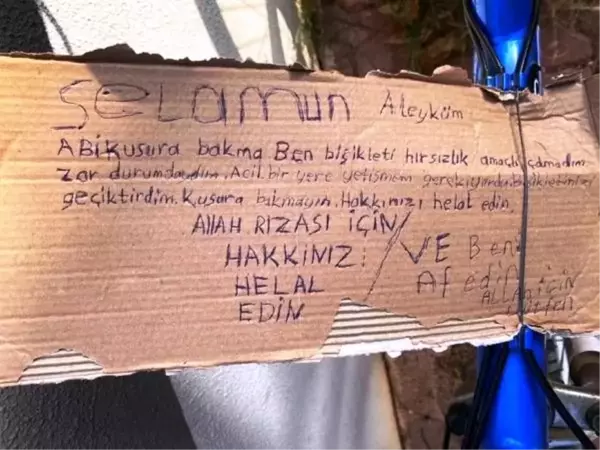 Selamun Aleyküm
ABi kusura bakma Ben bisikleti hırsızlık amaçlı çalmadım
Zor durumdaydım. Acil bir yere yetişmem gerekiyordu. bisikletinizi
geçiktirdim. Kusura bakmayın. Hakkınızı helat edin.
ALLAH RIZASI İÇİN
HAKKINIZ
HELAL
EDİN
VE Beni
Af edin
ALLAH İÇİN